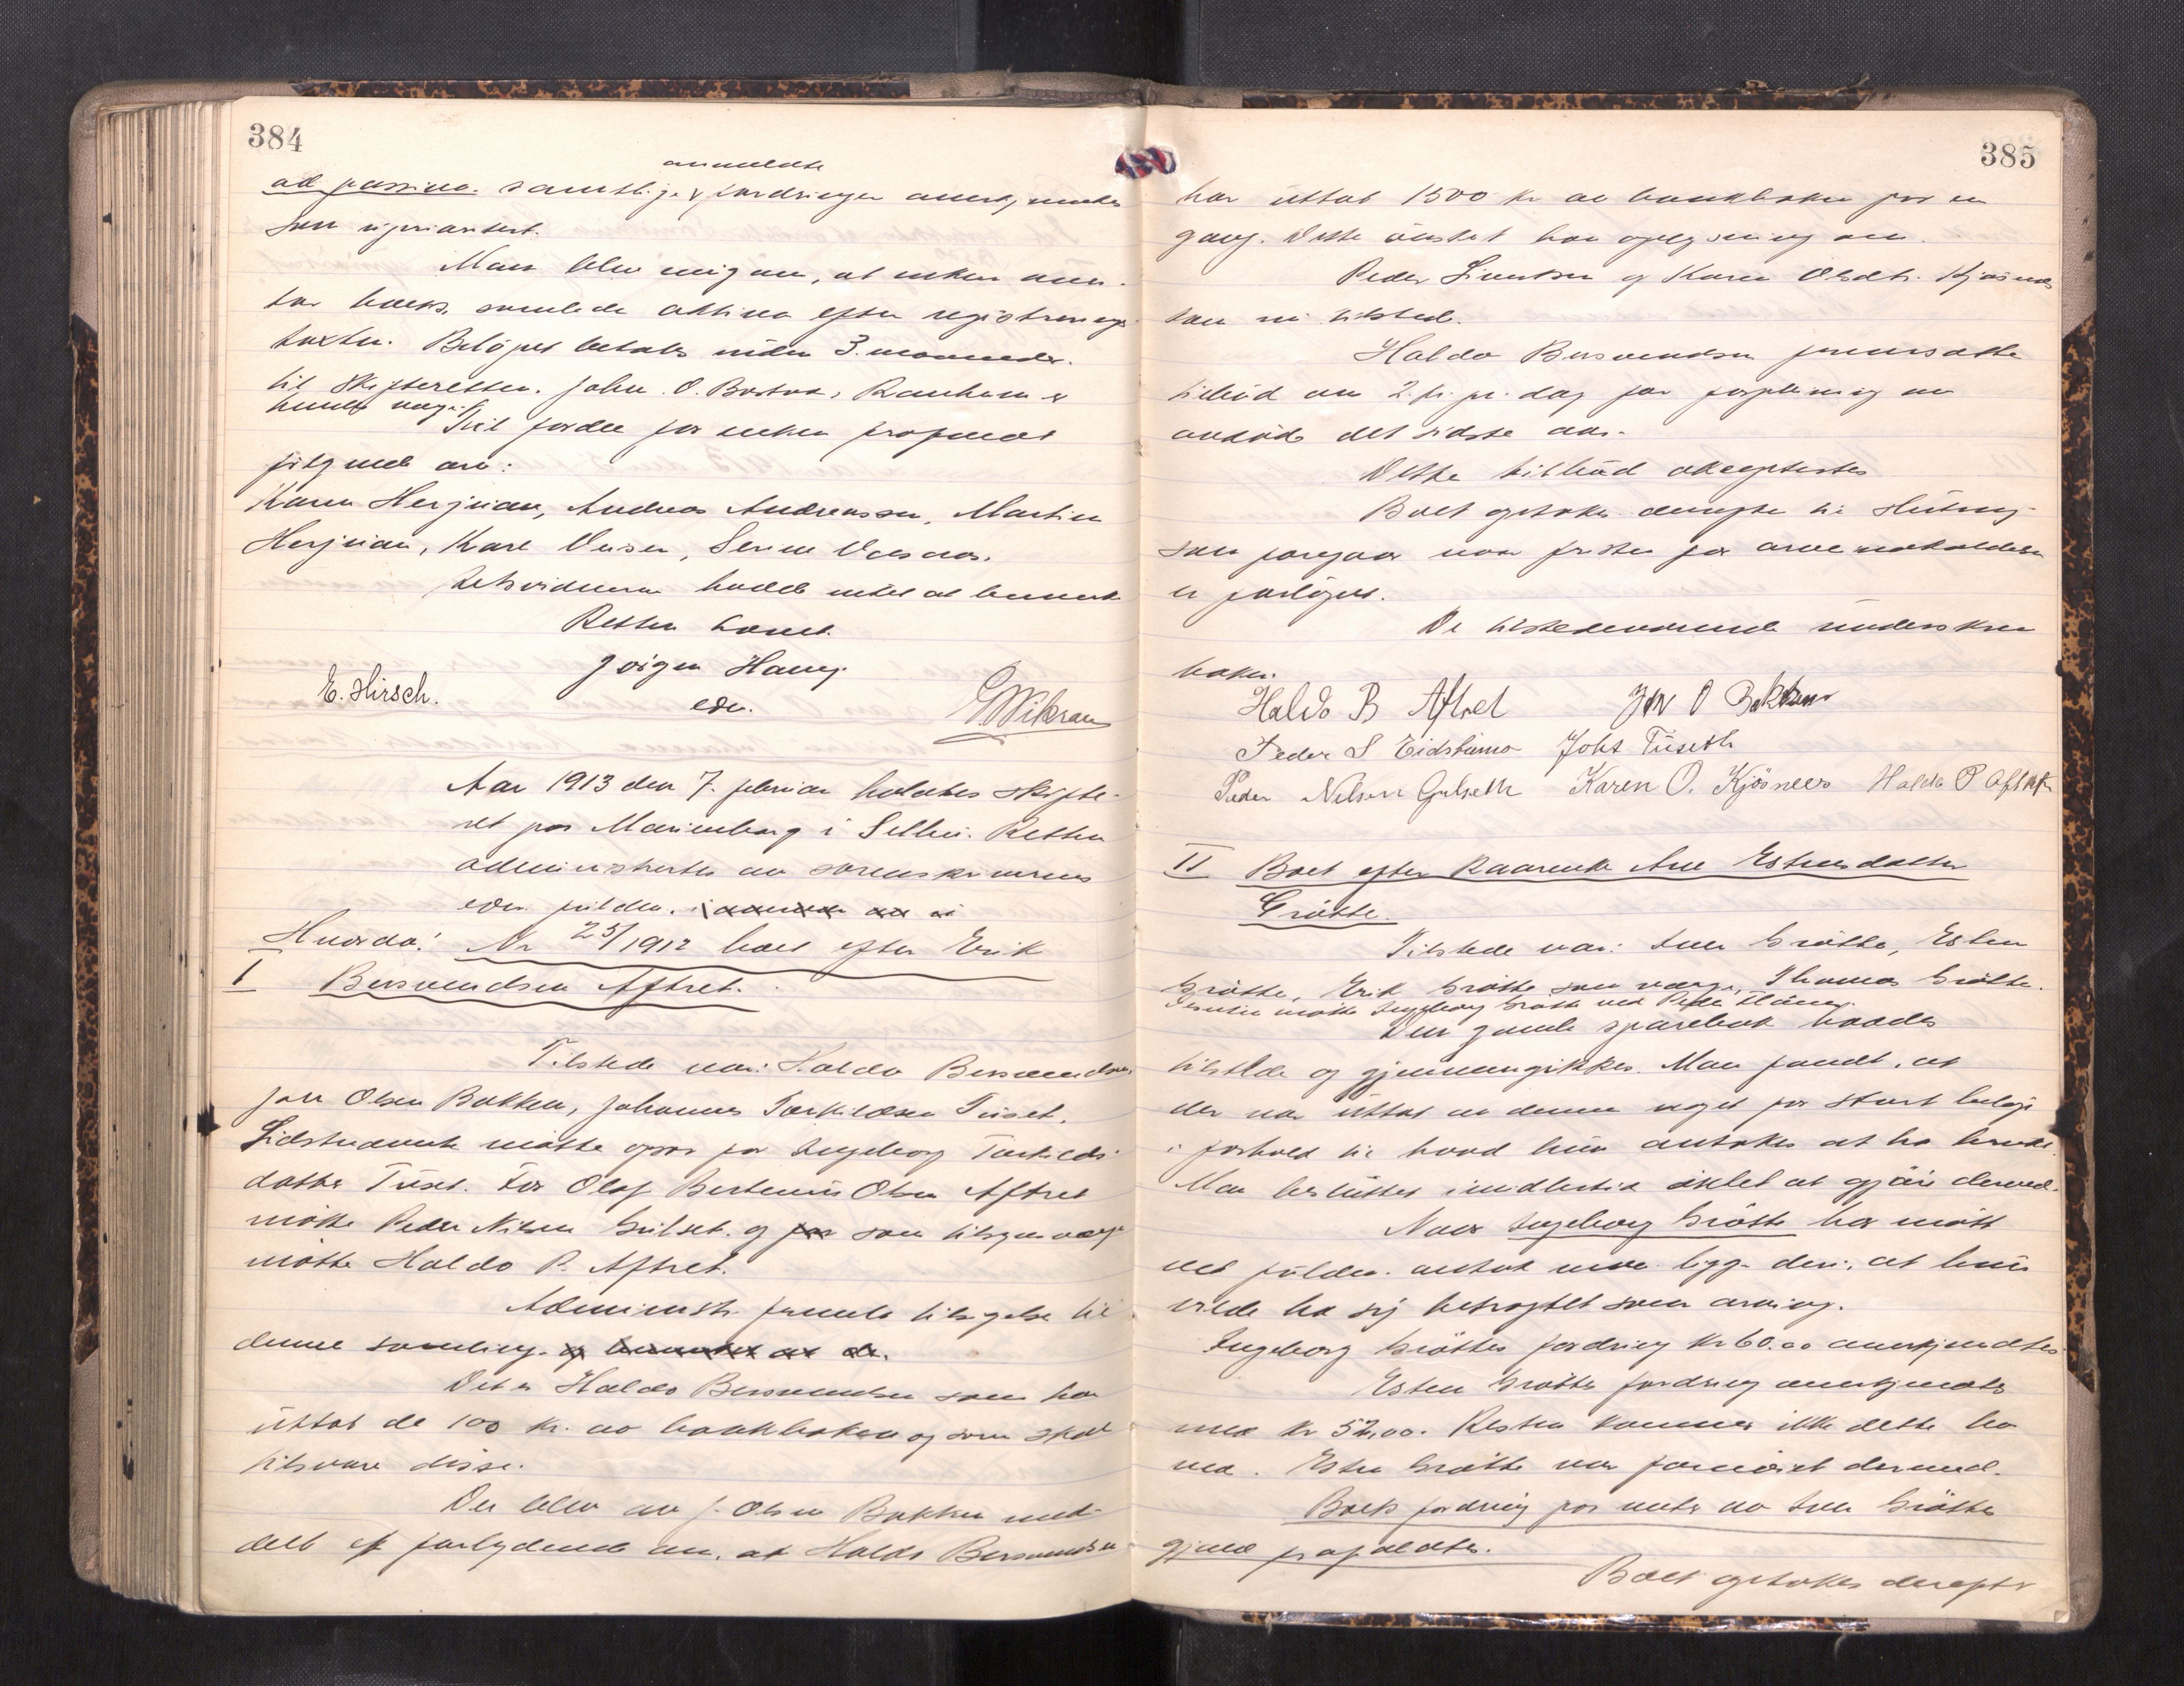 384
anmeldte
ad passiva. samtlige fordringer anerkjendtes
som uprioritert.
Man blev enig om, at enken over-
tar boets samlede aktiva efter registrerings-
taxten. Beløpet betales inden 3. maaneder.
til skifteretten. John O. , Ranheim er
hendes verge.
Til fordel for enken frafaldt
følgende arv:
Karen Herjuan, Andreas Andreassen, Martin
Herjuan, Karl , .
Retsvidnerne hadde intet at bemerke
Retten hævet.
Jörgen Haug
edv.
E. Hirsch. GWikran
Aar 1913 den 7. februar holdtes skifte-
ret paa Marienborg i Selbu. Retten
administrertes av sorenskriverens
edv. fuldm.
Hvorda: Nr 25/1912 boet efter Erik
I Bersvendsen Aftret.
Tilstede var: Haldo Bersvendsen
Jon Olsen Bakken, Johannes Torkildsen Tuset.
Sidstnævnte møtte ogsaa for Ingeborg Torkilds-
datter Tuset. For Olaf Olsen Aftret
møtte Peder Nilsen Gulset. og som tilsynsverge
møtte Haldo P. Aftret.
Administr. fremla tilsigelse til
denne samling.
Det er Haldo Bersvendsen som har
uttat de 100 kr. av bankboken og som skal
tilsvare disse.
Der blev av J. Olsen Bakken med-
delt et forlydende om, at Haldo Bersvendsen
385
har uttat 1500 kr av bankboken paa en
gang. Dette ønsket han oplysning om.
Peder Simonsen og Karen Olsdtr. Kjøsnes
kom nu tilstede.
Haldo Bersvendsen fremsatte
tilbud om 2 kr. pr. dag for forpleining av
avdøde det sidste aar.
Dette tilbud akcepteres
Boet optokes derefter til slutning
som foregaar naar fristen for
er forløpet.
De tilstedeværende underskrev
boken.
Haldo B Aftret Jon O Bakken
Peder S Eidstumo Johs Tuseth
Peder Nilsen Gulseth Karen O. Kjösnes Haldo P Aftret
II Boet efter kaarenke Ane Estensdatter
Grøtte.
Tilstede var: Grøtte, Esten
Grøtte, Erik Grøtte som verge, Thomas Grøtte.
Desuten møtte Ingeborg Grøtte ved Peder
Den gamle sparebok havdes
tilstede og gjennemgikkes. Man fandt, at
der var uttat av denne noget for stort beløp
i forhold til hvad hun antokes at ha brukt.
Man besluttet imidlertid intet at gjøre derved.
Naar Ingeborg Grøtte har møtt
ved fuldm. antok ligge deri, at hun
vilde ha sig betragtet som arving.
Ingeborg Grøttes fordring kr 60.00 anerkjendtes
Esten Grøttes fordring anerkjendtes
med kr 52,00. Resten kunne ikke dette bo
ved. Esten Grøtte var fornøiet dermed.
Boets fordring paa renter av Grøttes
gjæld frafaldtes.
Boet optokes derefter